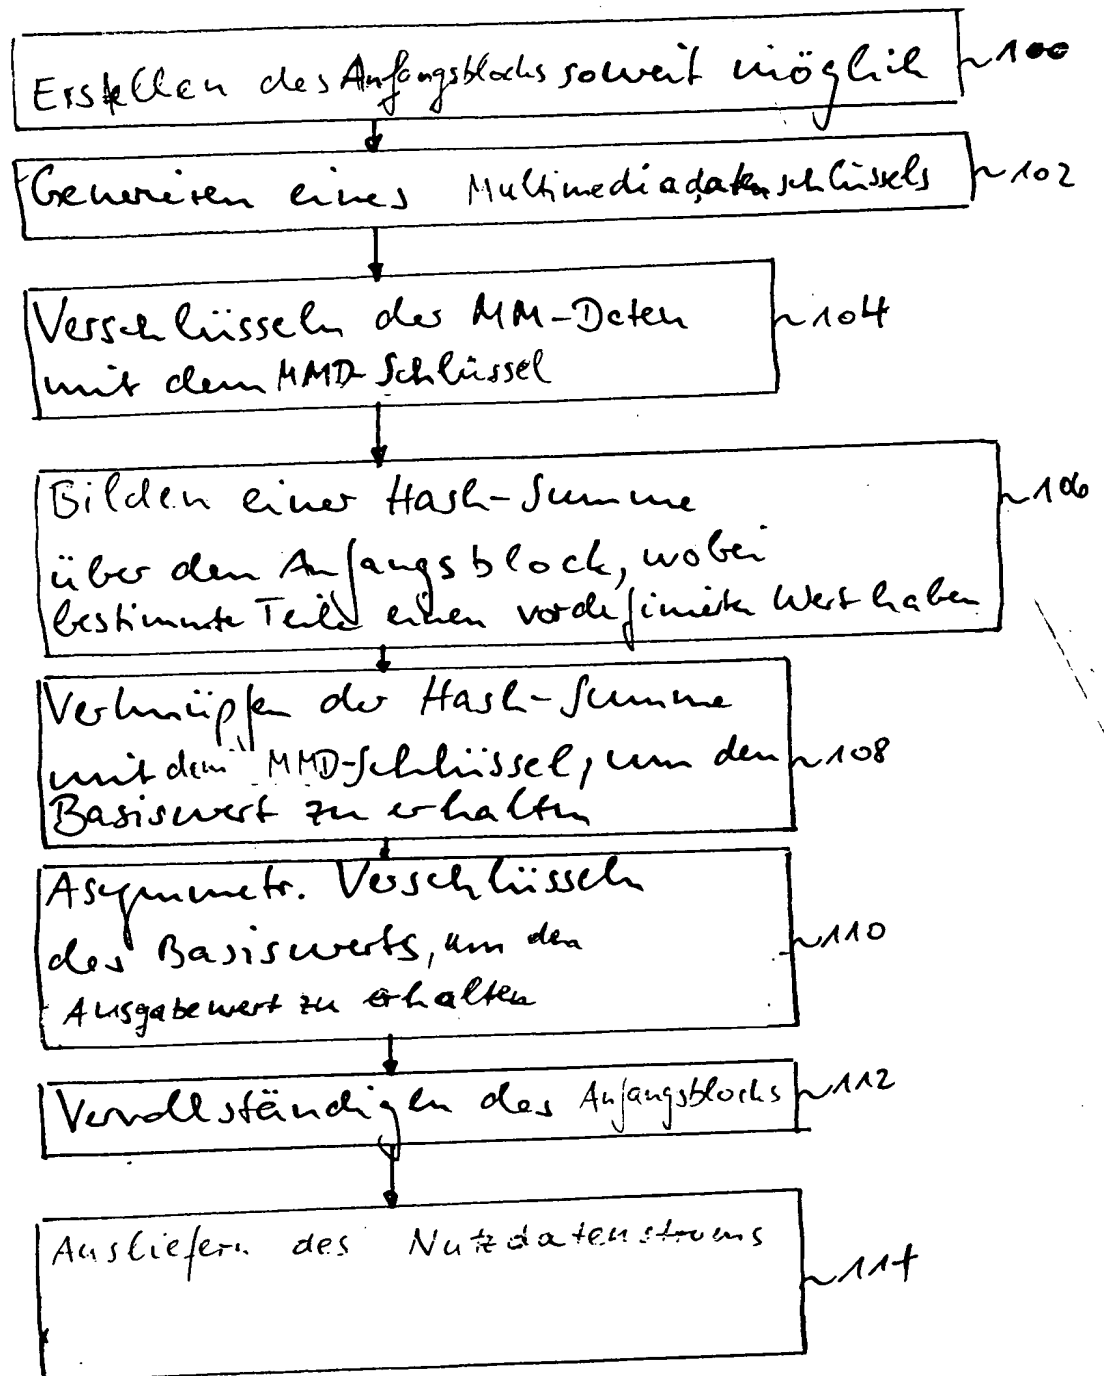 Erstellen des Anfangsblocks soweit möglich 100
Generieren eines Multimediadatenschlüssels 102
Verschlüsseln der MM-Daten 104
mit dem MMD-Schlüssel
Bilden einer Hash-Summe 106
über den Anfangsblock, wobei
bestimmte Teile einen vordefinierten Wert haben
Verknüpfen der Hash-Summe
mit dem MMD-Schlüssel, um den 108
Basiswert zu erhalten
Asymmetr. Verschlüsseln
des Basiswerts, um den 110
Ausgabewert zu erhalten
Vervollständigen des Anfangsblocks 112
Ausliefern des Nutzdatenstroms
114